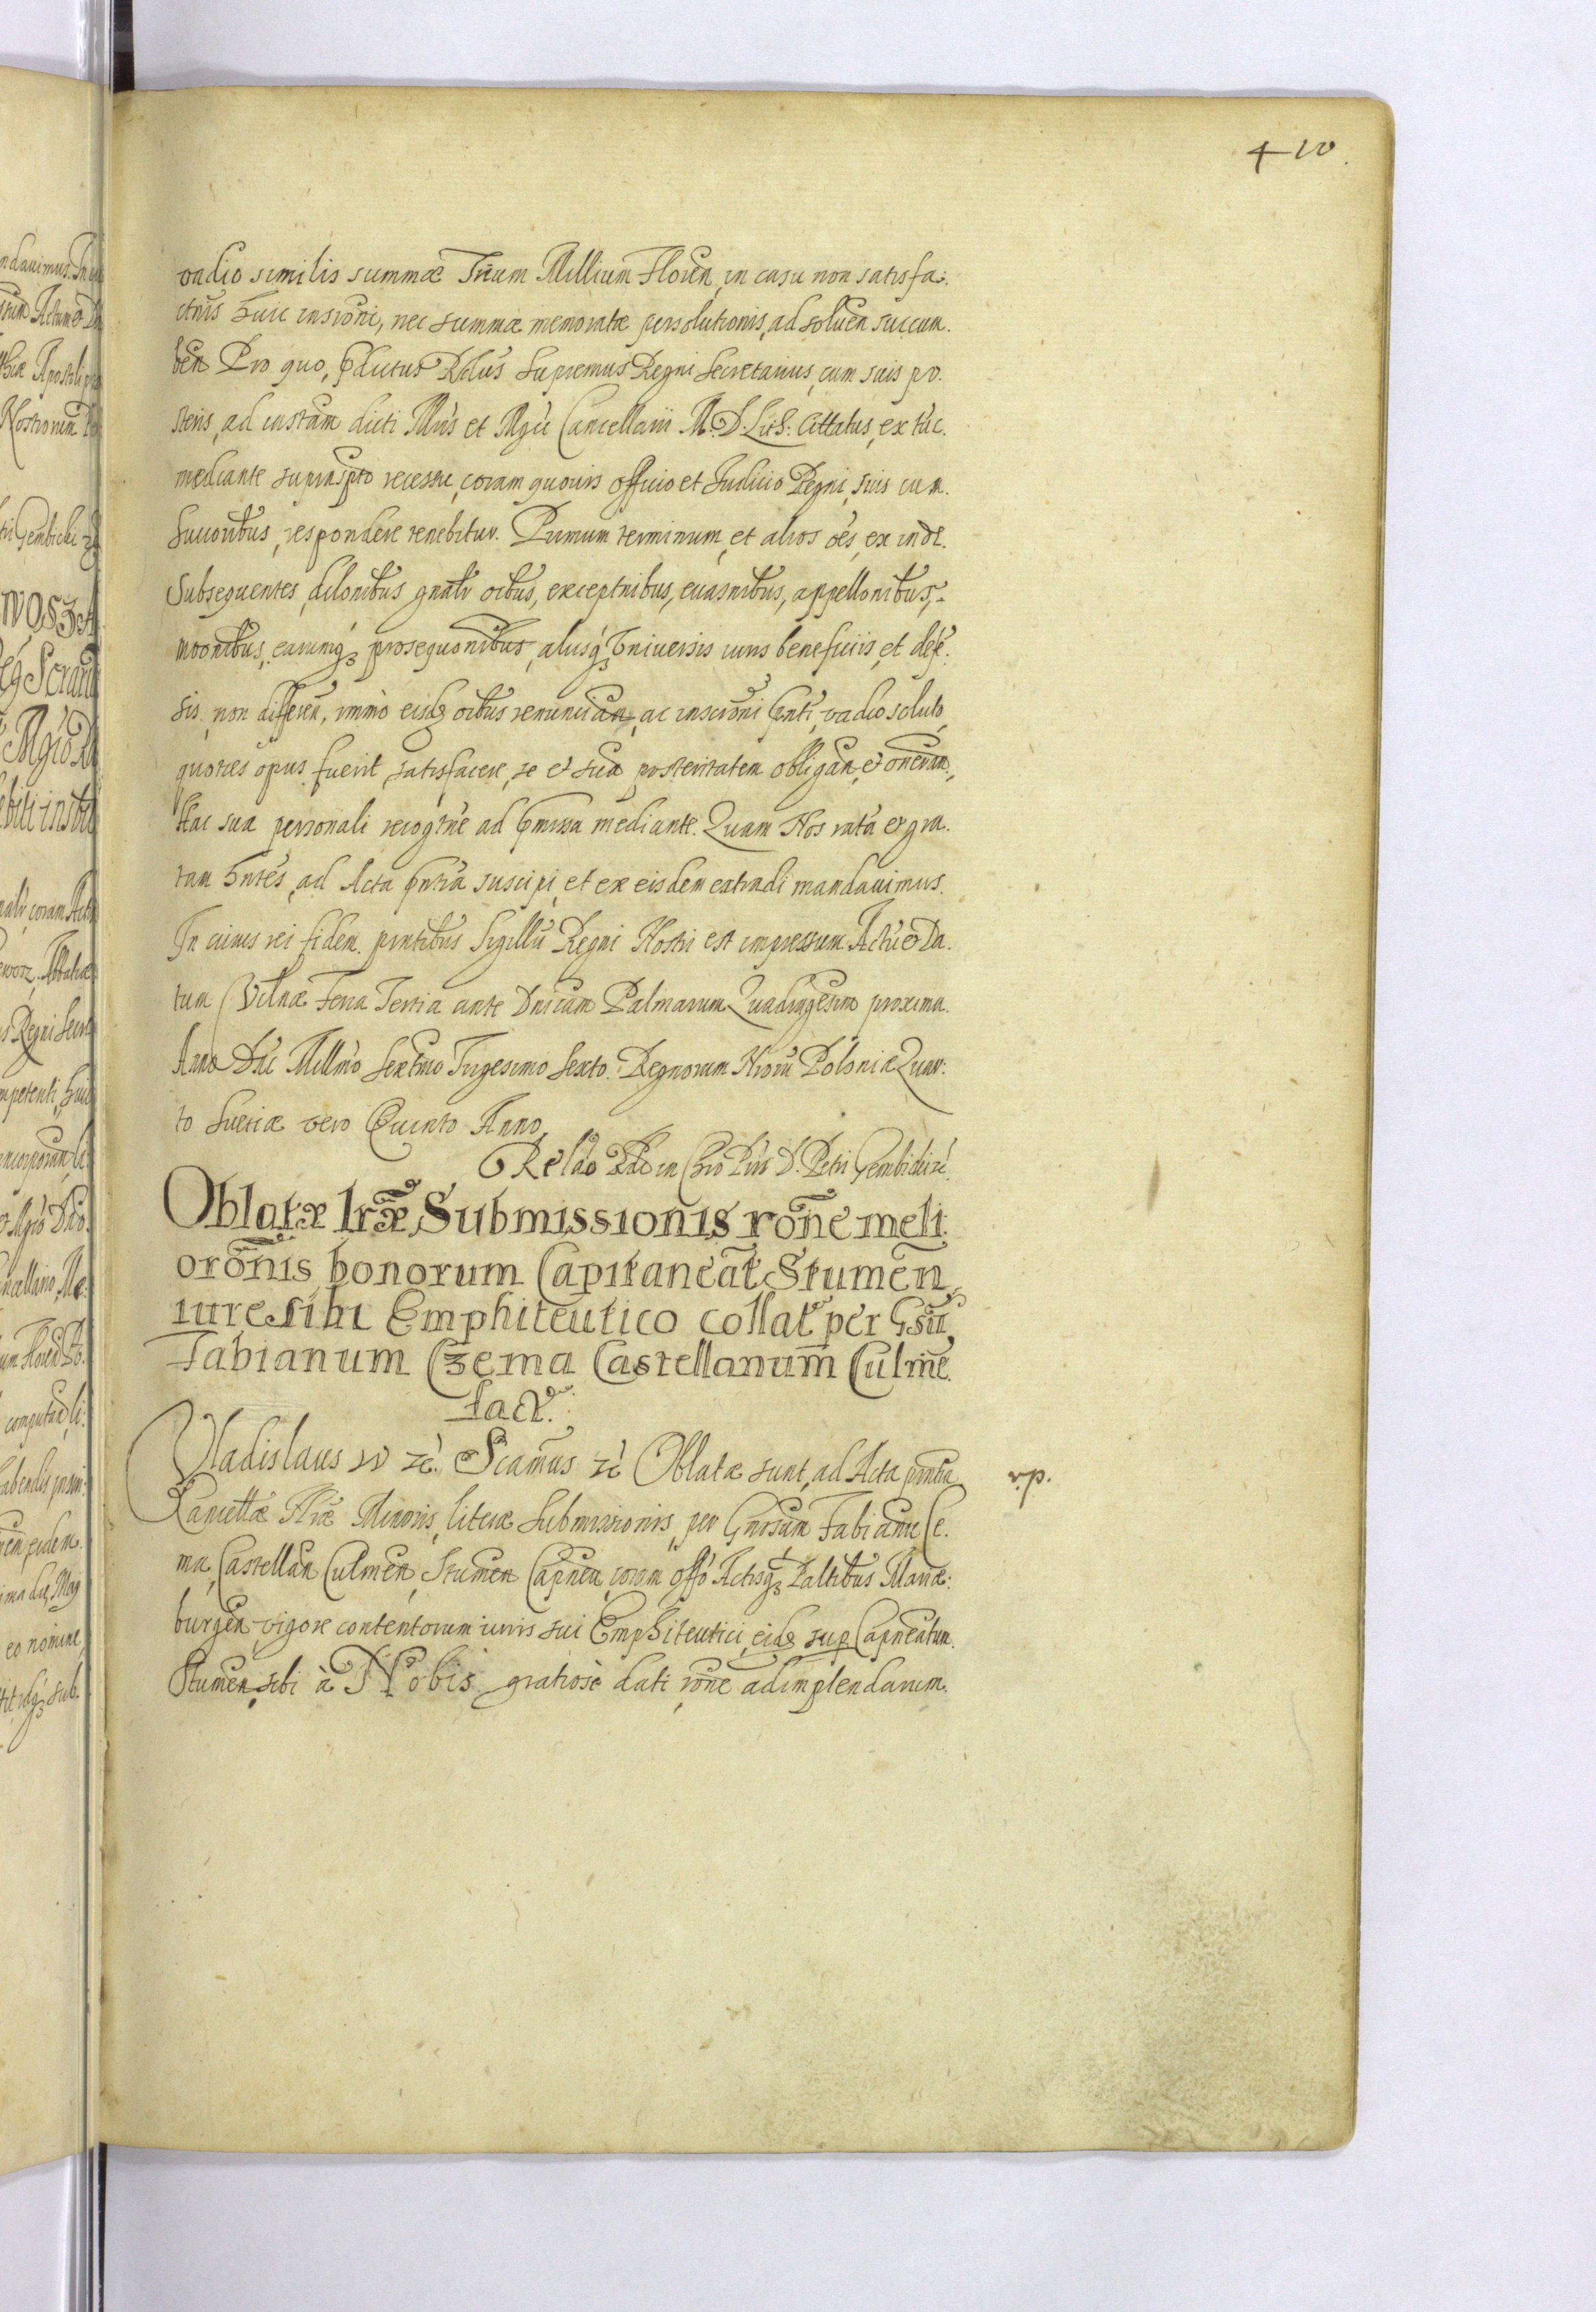 410.
vadio similis summæ Trium Millium Floren, in casu non satisfa:
ctnis huic inscrōni, nec summæ memoratæ persolutionis, ad soluen succum.
ben Pro quo, p̃dictus Rdus Supremus Regni Secretarius, cum suis po.
steris, ad instam dicti Illris et Mgci Cancellarii M. D. Lith: Cittatus, ex tūc.
mediante suprascpto recessu, coram quovis officio et Judicio Regni, suis cum.
Successoribus, respondere tenebitur. Primum terminum, et alios oēs, ex inde.
Subsequentes, dilonibus gnalr oibus, exceptnibus, euasnibus, appellonibus,
motonibus, earumq3 prosequonibus, alijsq3 Vniuersis iuris beneficiis, et defē.
sis, non differen, immò eisdē oibus renuncian, ac inscrōni p̃nti, vadio soluto,
quoties opus fuerit, satisfacere, se et suā posteritatem obligān, et onerān,
Hac sua personali recogne ad p̃missa mediante. Quam Nos ratā et gra.
tam hntēs, ad Acta p̃ntia suscipi, et ex eisdem extradi mandauimus.
In cuius rei fidem. pntibus Sigillū Regni Nostri est impressum Actū et Da.
tum Vilnæ Feria Tertia ante Dnicam Palmarum Quadragesimo proxima.
Anno Dni Millmo Sextmo Trigesimo Sexto. Regnorum Nrorū Poloniæ Quar:
to Sueciæ vero Quinto Anno.
Relāo Rdi in Chro Pris D. Petri Gembicki zč.
Oblatæ lræ Submissionis rōne meli.
orōnis bonorum Capitaneat Stumēn,
iure sibi Emphiteutico collat per Gsū,
Fabianum Czema Castellanum Culmē.
fact.
Vladislaus IV zč. Scamus zč Oblatæ sunt, ad Acta pntia
v.p.
Cancellæ Nræ Minoris, literæ Submissionis, per Gnrsum Fabianū Ce.
ma, Castellan Culmen, Stumen Capnea, coram offō Actisq3 Paltibus Mariæ:
burgēn vigore contentorum iuris sui Emphiteutici, eidē sup Capneatum.
Stumen, sibi à Nobis gratiosè dati rōne adimplendarum.